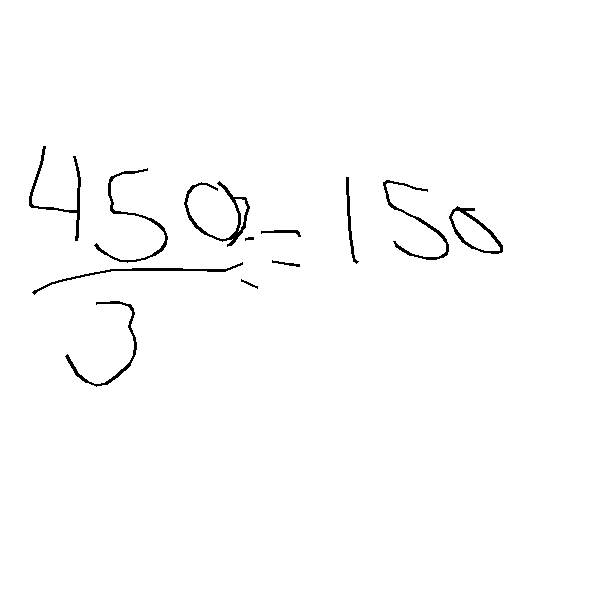 450/3 = 150